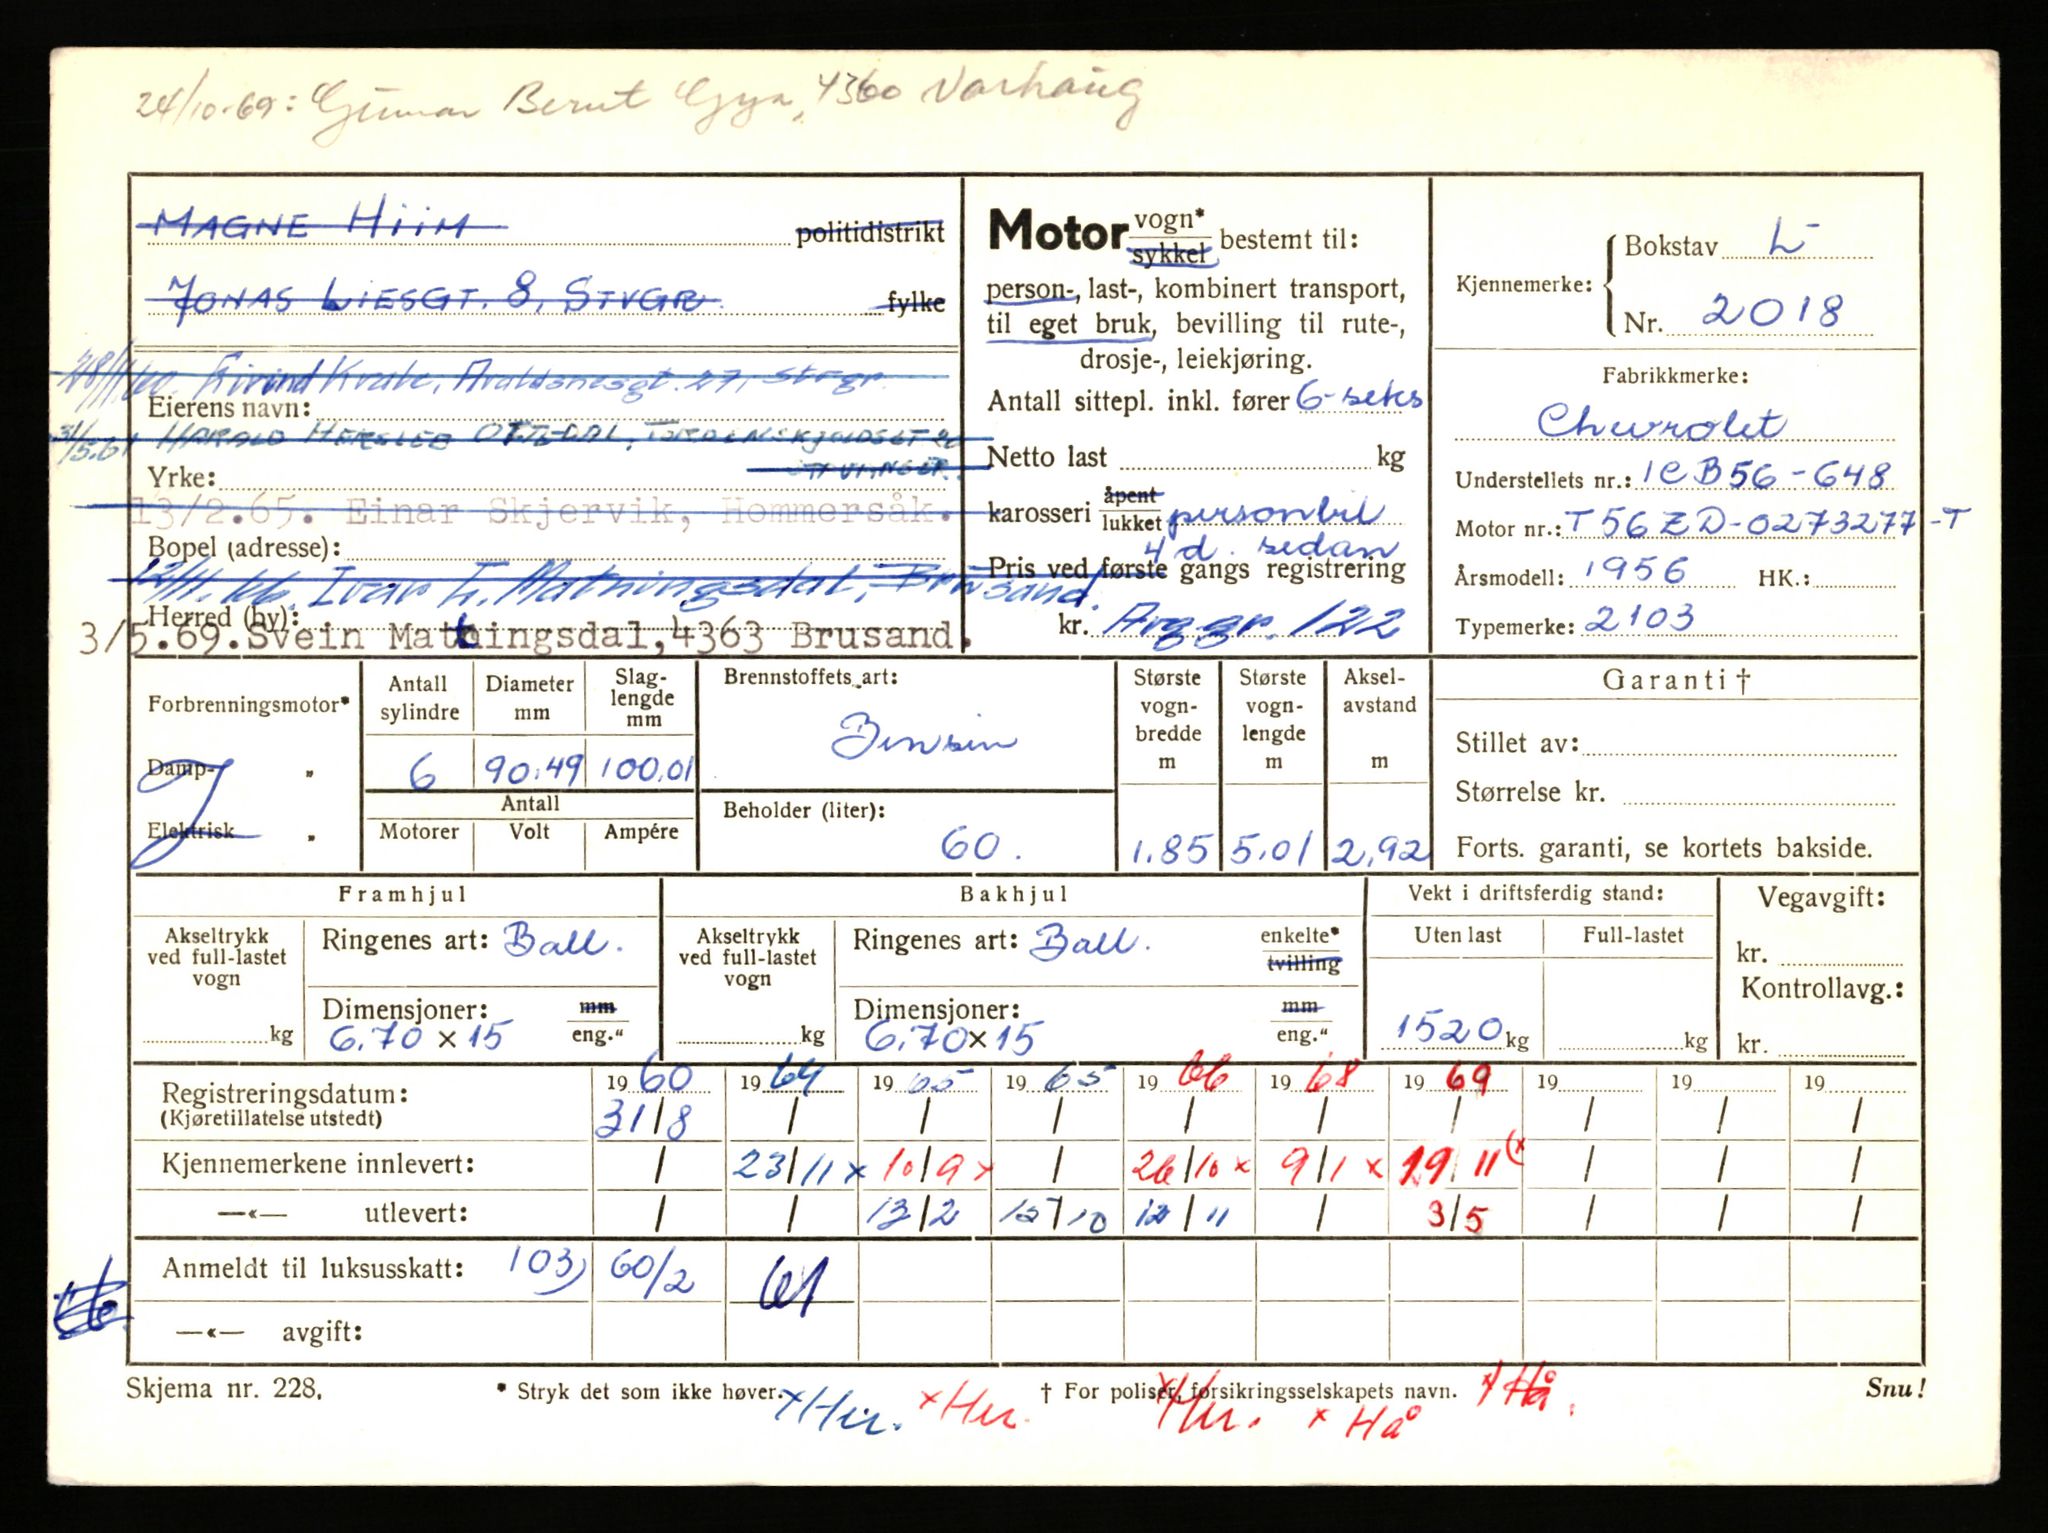 24/10-69: Gunnar Bernt Gya, 4360 Varhaug
MAGNE HIIM politidistrikt
JONAS LIESGT. 8, STVGR. fylke
28/11.60. Eivind Kvale, Avaldsnesgt. 27, Stvgr.
Eierens navn:
31/5.61 HARALD HERSLEB OTTEDAL, TORDENSKJOLDSGT
STAVANGER.
Yrke:
13/2.65. Einar Skjervik, Hommersåk.
Bopel (adresse):
12/11.66. Ivar T. Matningsdal, Brusand.
Herred (by):
3/5.69. Svein Matningsdal, 4363 Brusand.
Motor vogn* sykkel bestemt til:
person-, last-, kombinert transport,
til eget bruk, bevilling til rute-,
drosje-, leiekjøring.
Antall sittepl. inkl. fører 6-seks
Netto last kg
karosseri åpent lukket personbil
4 d. sedan
Pris ved første gangs registrering
kr. Avg.gr. 122
Kjennemerke: Bokstav L-
Nr. 2018
Fabrikkmerke:
Chevrolet
Understellets nr.: 1CB56-648
Motor nr.: T56ZD-0273277-T
Årsmodell: 1956 HK.:
Typemerke: 2103
Forbrenningsmotor*
Damp- "
Elektrisk "
Antall sylindre 6
Diameter mm 90.49
Slag-lengde mm 100.01
Antall
Motorer Volt Ampére
Brennstoffets art:
Bensin
Beholder (liter):
60.
Største vogn-bredde m 1.85
Største vogn-lengde m 5.01
Aksel-avstand m 2,92
Garanti †
Stillet av:
Størrelse kr.
Forts. garanti, se kortets bakside.
Framhjul
Akseltrykk ved full-lastet vogn
kg
Ringenes art: Ball.
Dimensjoner: mm
6.70 x 15 eng."
Bakhjul
Akseltrykk ved full-lastet vogn
kg
Ringenes art: Ball. enkelte* tvilling
Dimensjoner: mm
6.70x15 eng."
Vekt i driftsferdig stand:
Uten last Full-lastet
1520 kg kg
Vegavgift:
kr.
Kontrollavg.:
kr.
Registreringsdatum: 1960 1964 1965 1965 1966 1968 1969 19 19 19
(Kjøretillatelse utstedt) 31/8 / / / / / / / / /
Kjennemerkene innlevert: / 23/11x 10/9x / 26/10x 9/1x 19/11(x / / /
—«— utlevert: / / 13/2 15/10 12/11 / 3/5 / / /
Anmeldt til luksusskatt: 103) 60/2 61
—«— avgift:
Skjema nr. 228.
* Stryk det som ikke høver.
† For poliser, forsikringsselskapets navn.
Snu!
x Her. x Her. x Her. x Hå x Hå.